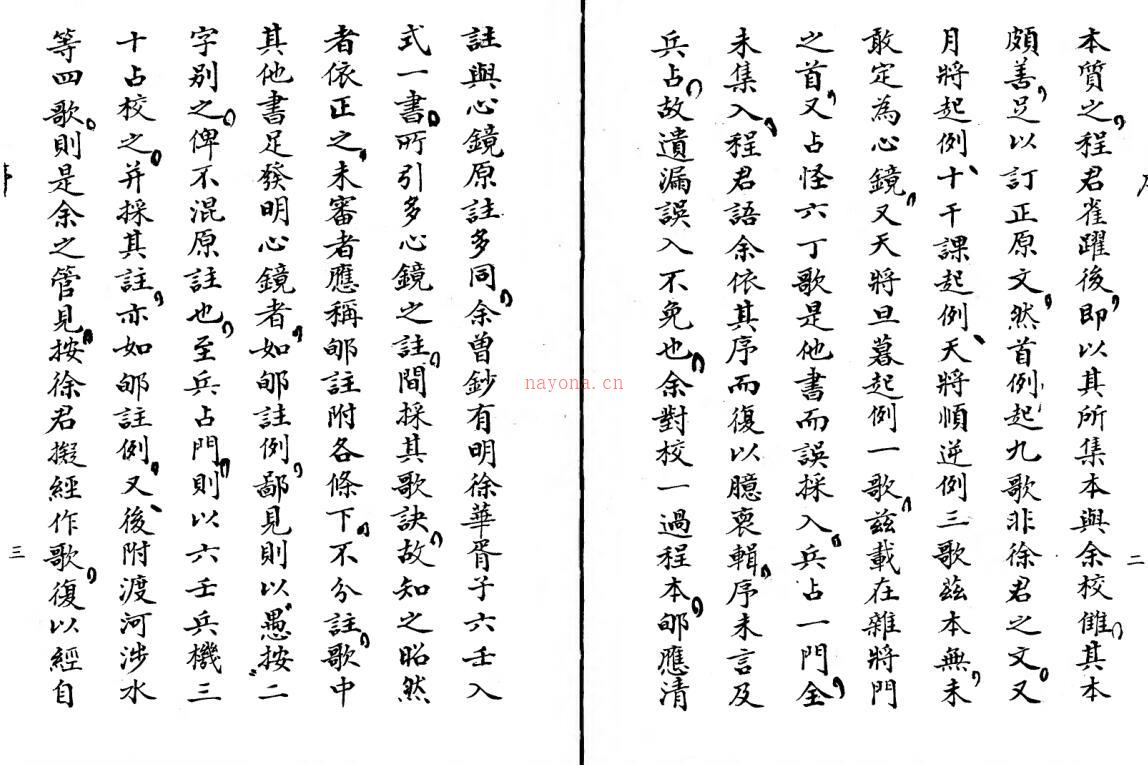 本質之，程君雀躍後，即以其所集本與余校讎，其本
頗善，足以訂正原文，然首例起九歌非徐君之文。又
月將起例、十干課起例、天將順逆例三歌茲本無，未
敢定為心鏡，又天將旦暮起例一歌，茲載在雜將門
之首，又占怪六丁歌是他書而誤採入，兵占一門全
未集入，程君語余依其序而復以臆裒輯，序未言及
兵占，故遺漏誤入不免也，余對校一過程本，邮應清
二
註與心鏡原註多同，余曾鈔有明徐華胥子六壬入
式一書，所引多心鏡之註，間採其歌訣，故知之昭然
者依正之，未審者應稱邮註附各條下，不分註，歌中
其他書足發明心鏡者，如邮註例，鄙見則以“愚按”二
字別之，俾不混原註也，至兵占門，則以六壬兵機三
十占校之，并採其註，亦如邮註例，又、後附渡河涉水
等四歌，則是余之管見，按徐君擬經作歌，復以經自
三
nayona.cn